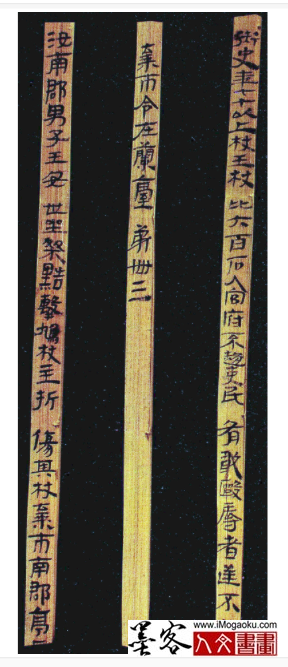 御史年七十以上杖王杖比六百石入官府不趨吏民有敢毆辱者逆不
棄市令在蘭臺第卌三
汝南郡男子王安世坐桀黠擊鳩杖主折傷其杖棄市南郡亭
墨客
www.iMogaoku.com